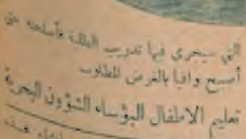 التي سيجري فيها تدريب الطلبة فأسلحته حتى
أصبح وافيا بالغرض المطلوب
تعليم الاطفال البؤساء الشؤون البحرية